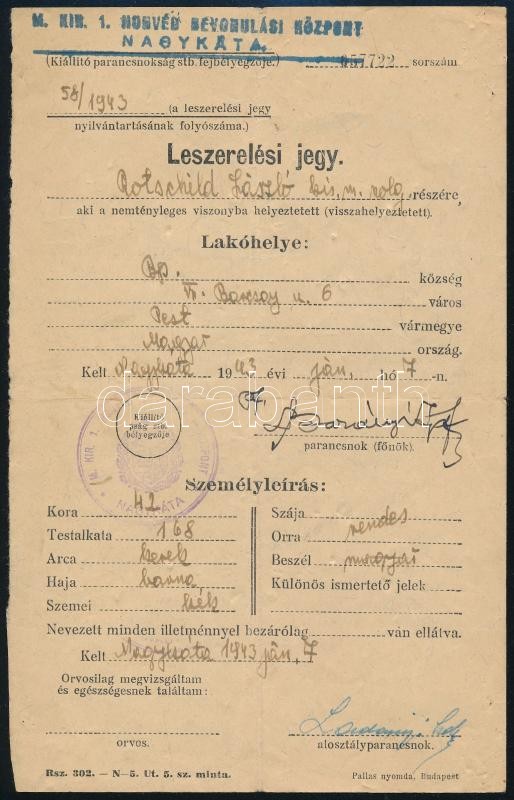 M. KIR. 1. HONVÉD BEVONULÁSI KÖZPONT
NAGYKÁTA.
(Kiállító parancsnokság stb. fejbélyegzője.) 057722 sorszám
58/1943 (a leszerelési jegy
nyilvántartásának folyószáma.)
Leszerelési jegy.
Rotschild László kis. m. szolg. részére,
aki a nemtényleges viszonyba helyeztetett (visszahelyeztetett).
Lakóhelye:
Bp. község
VII. Barcsay u. 6 város
Pest vármegye
Magyar ország.
Kelt Nagykáta 1943 évi ján. hó 7-n.
darabanth
Kiállító
pság stb.
bélyegzője
M. KIR. 1.
NAGYKÁTA
parancsnok (főnök).
Személyleírás:
Kora 42
Testalkata 168
Arca kerek
Haja barna
Szemei kék
Szája
Orra rendes
Beszél magyar
Különös ismertető jelek
Nevezett minden illetménnyel bezárólag van ellátva.
Kelt Nagykáta 1943 ján. 7
Orvosilag megvizsgáltam
és egészségesnek találtam:
orvos.
alosztályparancsnok.
Rsz. 302. — N—5. Ut. 5. sz. minta.
Pallas nyomda, Budapest